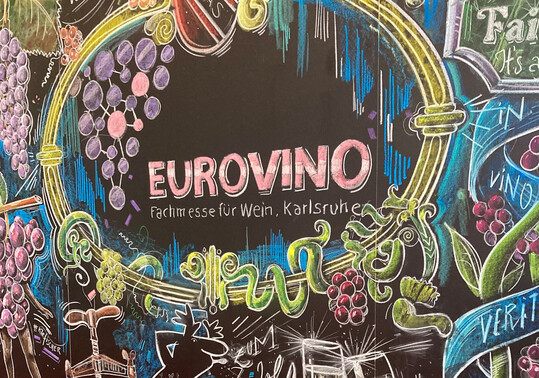 EUROVINO
Fachmesse für Wein, Karlsruhe
Fai
It's a
IN
VINO
VERIT